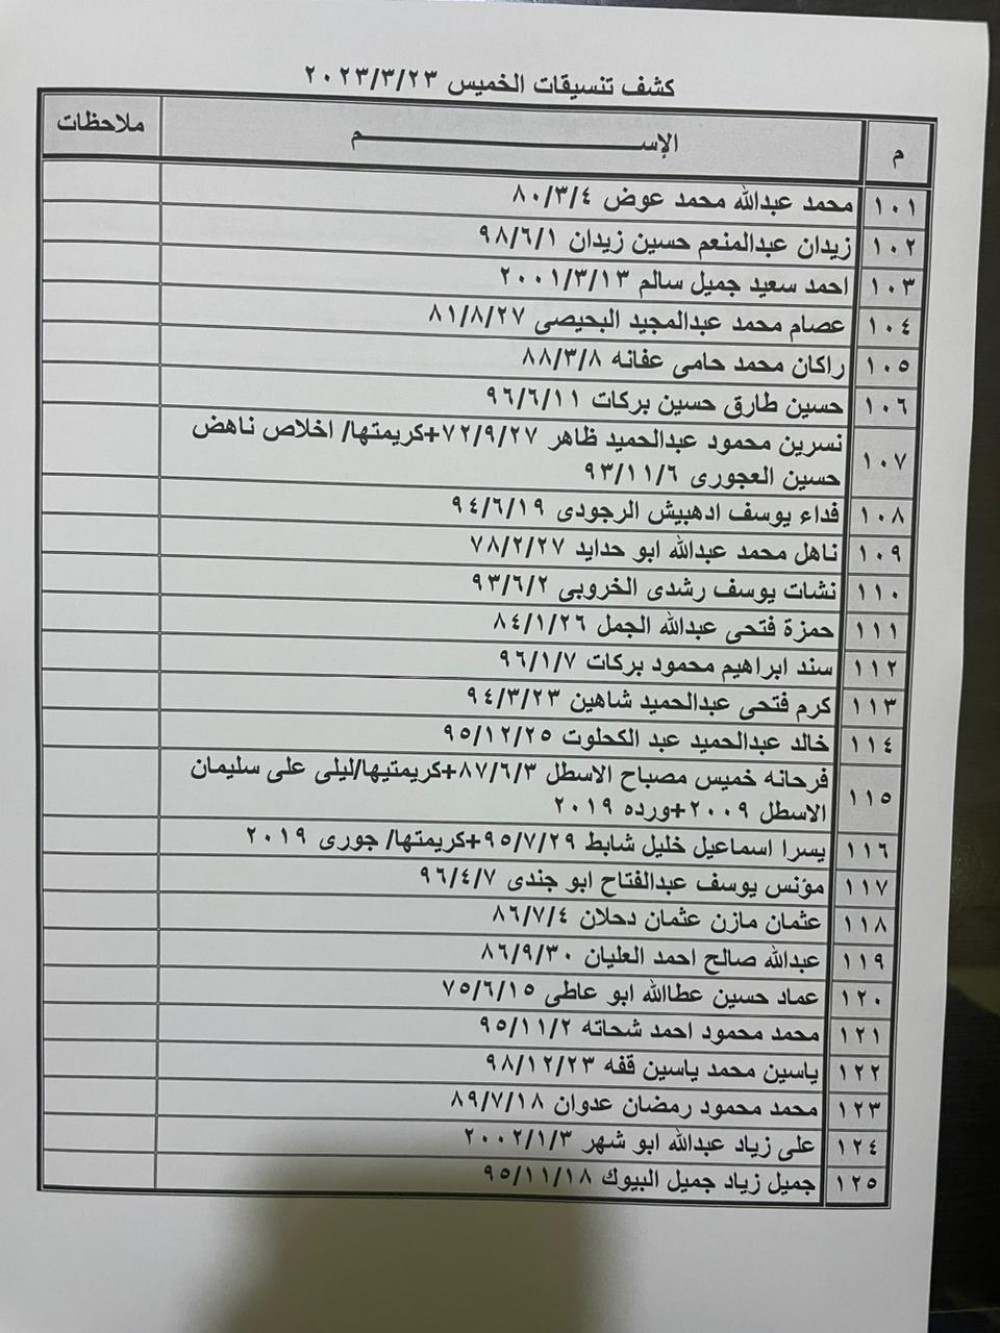 كشف تنسيقات الخميس ٢٠٢٣/٣/٢٣
م الإســـــــــم ملاحظات
١٠١ محمد عبدالله محمد عوض ٨٠/٣/٤
١٠٢ زيدان عبدالمنعم حسين زيدان ٩٨/٦/١
١٠٣ احمد سعيد جميل سالم ٢٠٠١/٣/١٣
١٠٤ عصام محمد عبدالمجيد البحيصى ٨١/٨/٢٧
١٠٥ راكان محمد حامى عفانه ٨٨/٣/٨
١٠٦ حسين طارق حسين بركات ٩٦/٦/١١
١٠٧ نسرين محمود عبدالحميد ظاهر ٧٢/٩/٢٧+كريمتها/ اخلاص ناهض
حسين العجورى ٩٣/١١/٦
١٠٨ فداء يوسف ادهبيش الرجودى ٩٤/٦/١٩
١٠٩ ناهل محمد عبدالله ابو حدايد ٧٨/٢/٢٧
١١٠ نشات يوسف رشدى الخروبى ٩٣/٦/٢
١١١ حمزة فتحى عبدالله الجمل ٨٤/١/٢٦
١١٢ سند ابراهيم محمود بركات ٩٦/١/٧
١١٣ كرم فتحى عبدالحميد شاهين ٩٤/٣/٢٣
١١٤ خالد عبدالحميد عبد الكحلوت ٩٥/١٢/٢٥
١١٥ فرحانه خميس مصباح الاسطل ٨٧/٦/٣+كريمتيها/ليلى على سليمان
الاسطل ٢٠٠٩+ورده ٢٠١٩
١١٦ يسرا اسماعيل خليل شابط ٩٥/٧/٢٩+كريمتها/ جورى ٢٠١٩
١١٧ مؤنس يوسف عبدالفتاح ابو جندى ٩٦/٤/٧
١١٨ عثمان مازن عثمان دحلان ٨٦/٧/٤
١١٩ عبدالله صالح احمد العليان ٨٦/٩/٣٠
١٢٠ عماد حسين عطاالله ابو عاطى ٧٥/٦/١٥
١٢١ محمد محمود احمد شحاته ٩٥/١١/٢
١٢٢ ياسين محمد ياسين قفه ٩٨/١٢/٢٣
١٢٣ محمد محمود رمضان عدوان ٨٩/٧/١٨
١٢٤ على زياد عبدالله ابو شهر ٢٠٠٢/١/٣
١٢٥ جميل زياد جميل البيوك ٩٥/١١/١٨